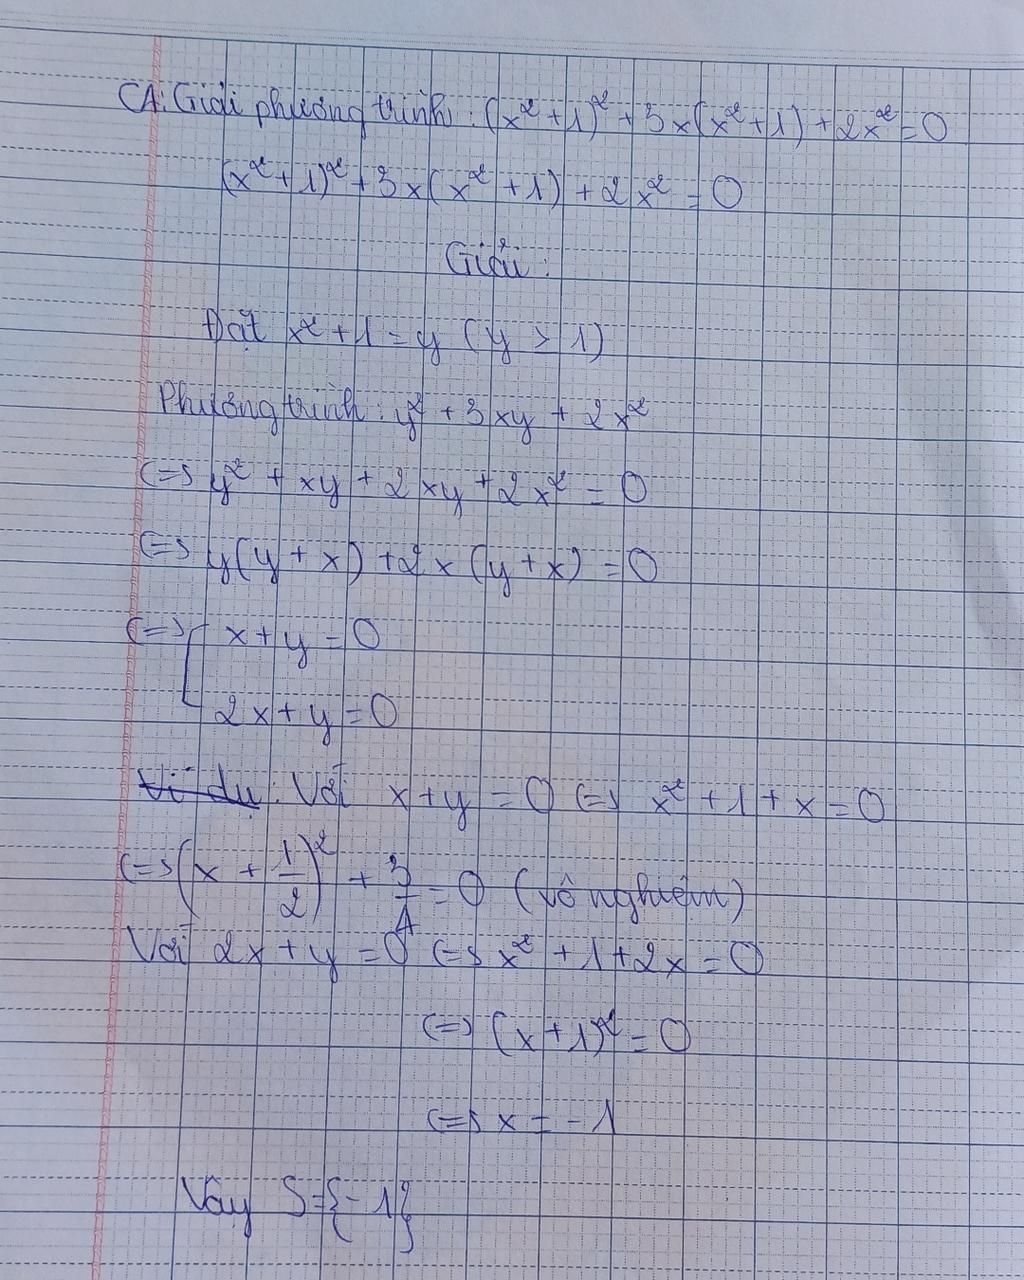 C4: Giải phương trình: (x²+1)² + 3x(x²+1) + 2x² = 0
(x²+1)² + 3x(x²+1) + 2x² = 0
Giải:
Đặt x²+1 = y (y > 1)
Phương trình: y² + 3xy + 2x²
<=> y² + xy + 2xy + 2x² = 0
<=> y(y+x) + 2x(y+x) = 0
<=> [ x+y = 0
2x+y = 0
Ví dụ: Với x+y = 0 <=> x²+1+x = 0
<=> (x + 1/2)² + 3/4 = 0 (vô nghiệm)
Với 2x+y = 0 <=> x²+1+2x = 0
<=> (x+1)² = 0
<=> x = -1
Vậy S={-1}